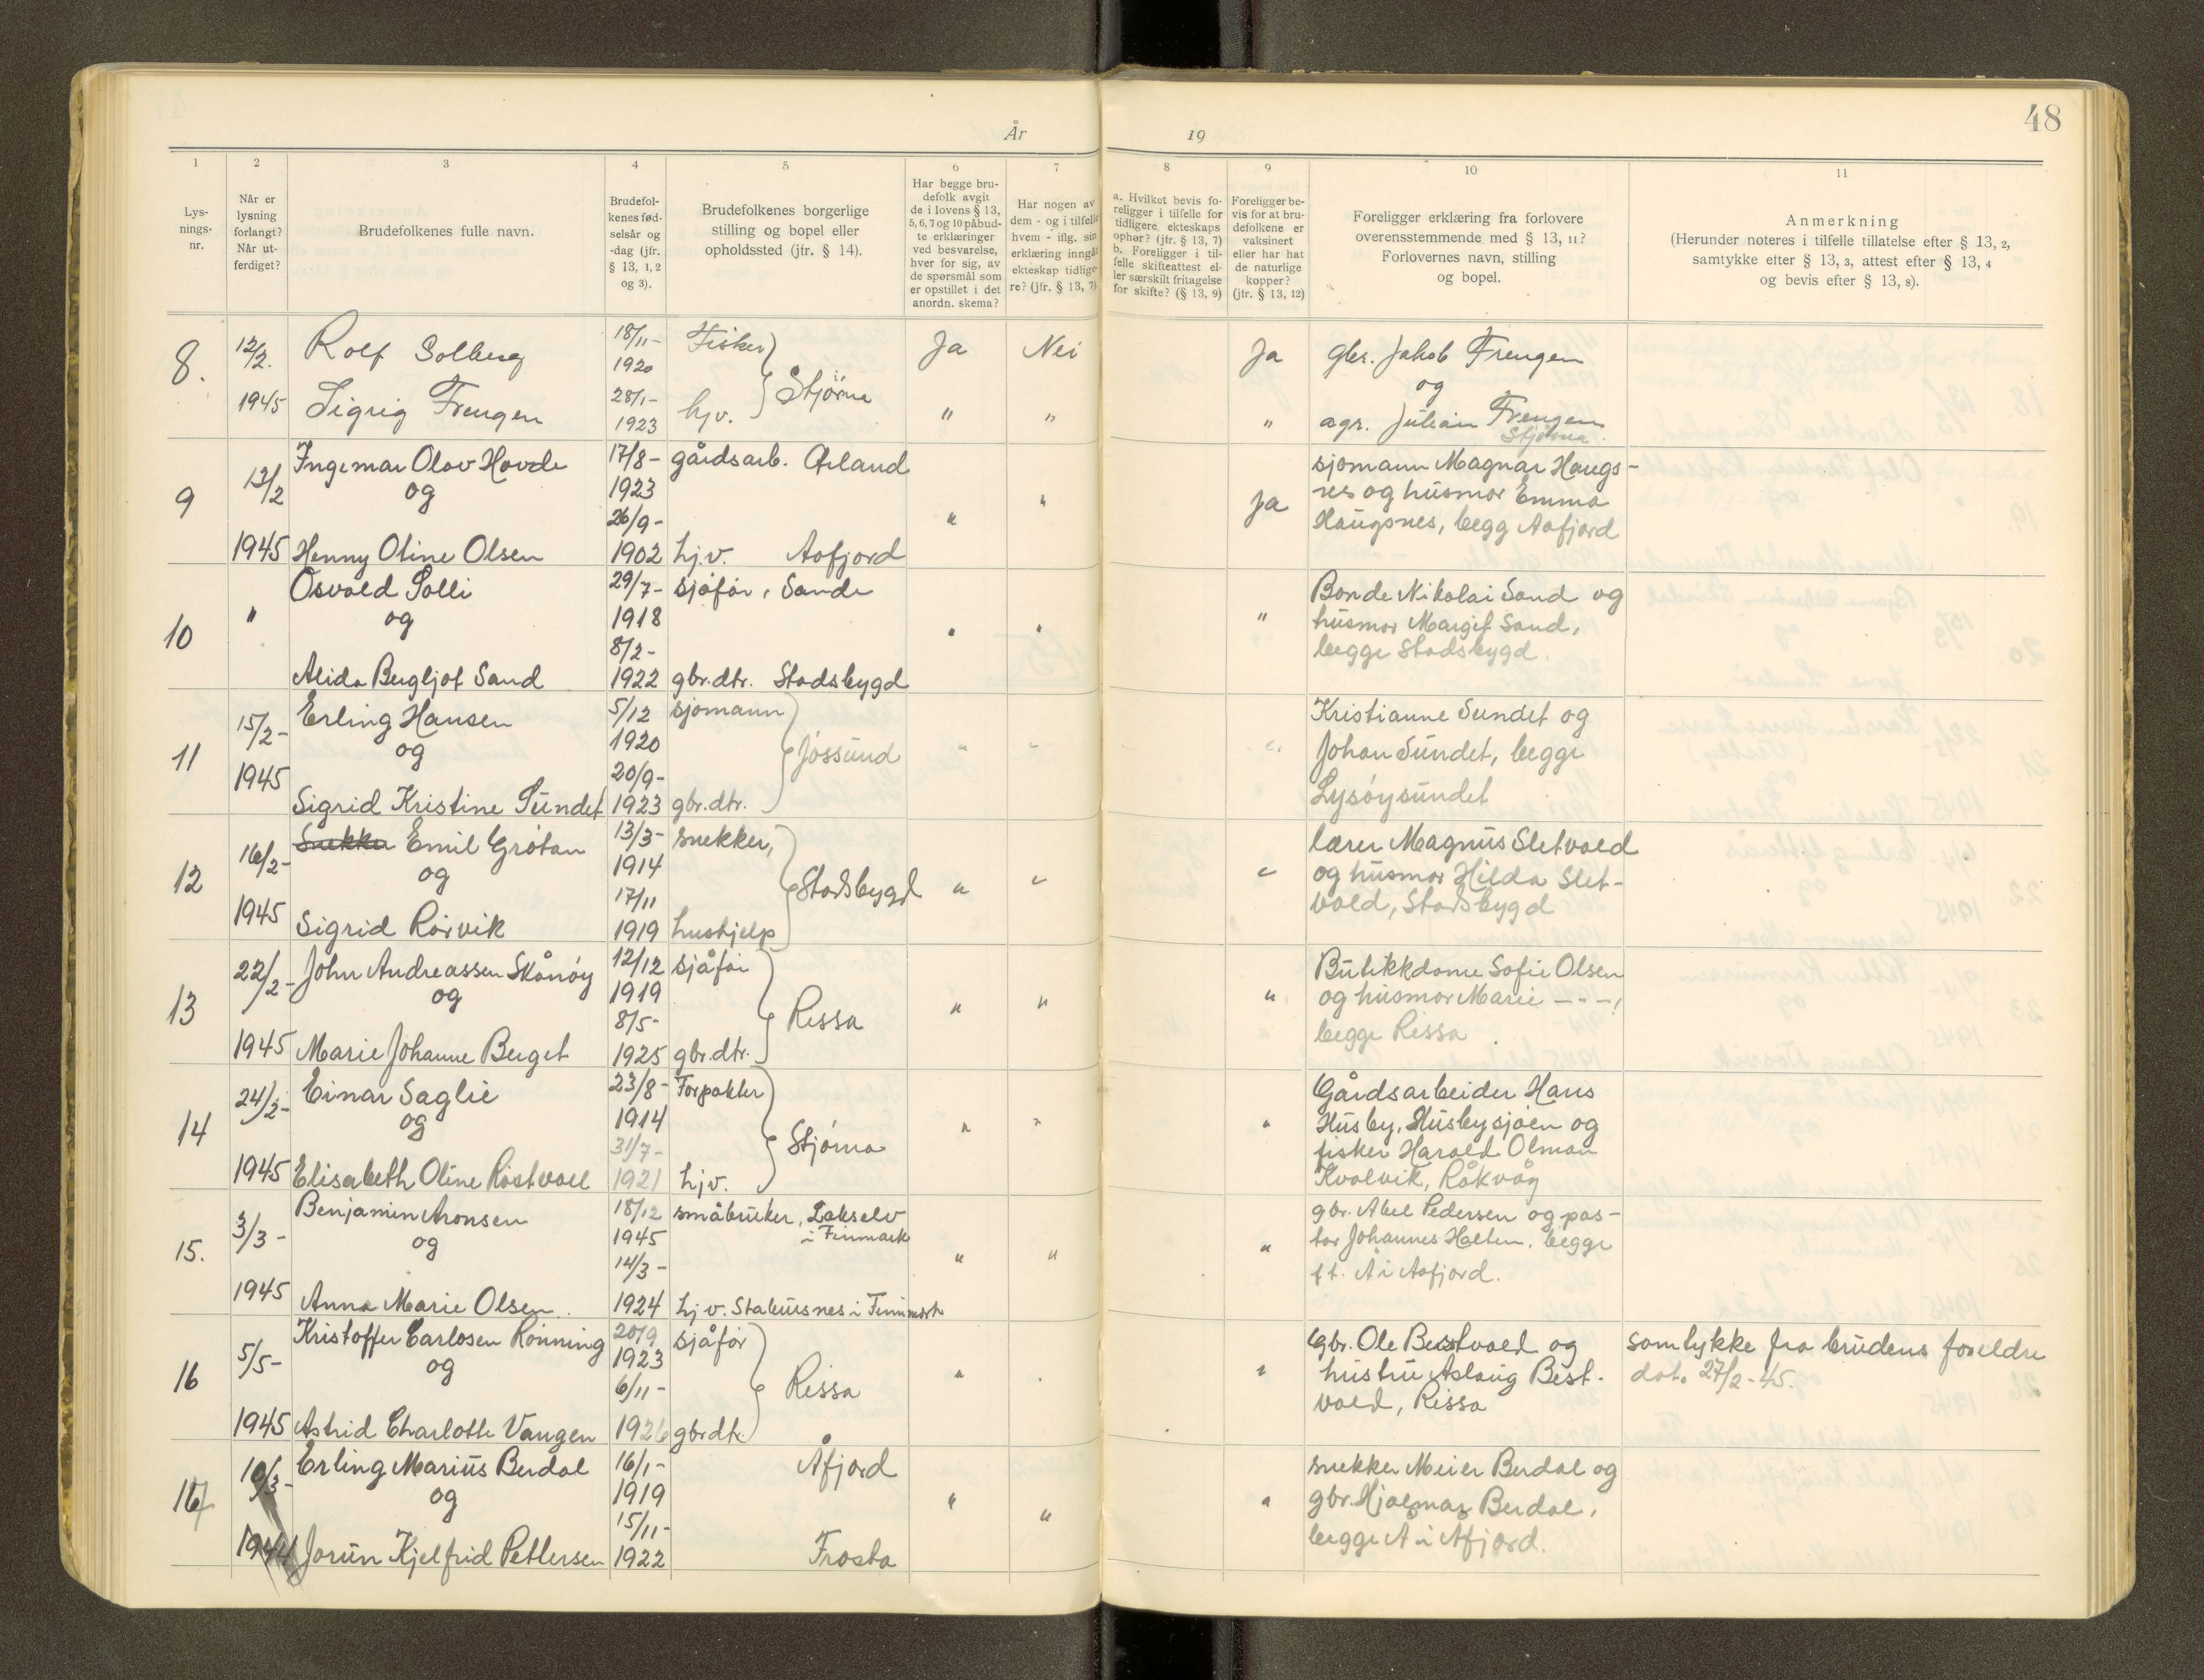 48
År 19
1 2 3 4 5 6 7 8 9 10 11
Lys-
nings-
nr.
Når er
lysning
forlangt?
Når ut-
ferdiget?
Brudefolkenes fulle navn.
Brudefol-
kenes fød-
selsår og
-dag (jfr.
§ 13, 1, 2
og 3).
Brudefolkenes borgerlige
stilling og bopel eller
opholdssted (jfr. § 14).
Har begge bru-
defolk avgit
de i lovens § 13,
5, 6, 7 og 10 påbud-
te erklæringer
ved besvarelse,
hver for sig, av
de spørsmål som
er opstillet i det
anordn. skema?
Har nogen av
dem - og i tilfelle
hvem - iflg. sin
erklæring inngåt
ekteskap tidlige-
re? (jfr. § 13, 7)
a. Hvilket bevis fo-
religger i tilfelle for
tidligere ekteskaps
ophør? (jfr. § 13, 7)
b. Foreligger i til-
felle skifteattest el-
ler særskilt fritagelse
for skifte? (§ 13, 9)
Foreligger be-
vis for at bru-
defolkene er
vaksinert
eller har hat
de naturlige
kopper?
(jfr. § 13, 12)
Foreligger erklæring fra forlovere
overensstemmende med § 13, 11?
Forlovernes navn, stilling
og bopel.
Anmerkning
(Herunder noteres i tilfelle tillatelse efter § 13, 2,
samtykke efter § 13, 3, attest efter § 13, 4
og bevis efter § 13, 8).
8. 12/2. 1945
Rolf Solberg
Sigrig Frengen
18/11-
1920
28/1-
1923
Fisker
hjv.
Stjørna
Ja Nei Ja
" " "
gbr. Jakob Frengen
og
agr. Julian Frengen
Stjørna.
9 12/2 1945
Ingemar Olav Hovde
og
Henny Oline Olsen
17/8-
1923
26/9-
1902
gårdsarb. Ørland
hj.v. Aafjord
" " Ja
sjømann Magnar Haugs-
nes og husmor Emma
Haugsnes, begg Aafjord
10 "
Osvald Solli
og
Alida Bergljot Sand
29/7-
1918
8/2-
1922
sjåfør, Sande
gbr.dtr. Stadsbygd
" " "
Bonde Nikolai Sand og
husmor Margit Sand,
begge Stadsbygd.
11 15/2- 1945
Erling Hansen
og
Sigrid Kristine Sundet
5/12
1920
20/9-
1923
sjømann
gbr.dtr.
Jøssund
" " "
Kristianne Sundet og
Johan Sundet, begge
Lysøysundet
12 16/2- 1945
Snekker Emil Grøtan
og
Sigrid Rørvik
13/3-
1914
17/11
1919
snekker,
hushjelp
Stadsbygd
" " "
lærer Magnus Sletvold
og husmor Hilda Slet-
vold, Stadsbygd
13 22/2- 1945
John Andreassen Skånøy
og
Marie Johanne Berget
12/12
1919
8/5-
1925
sjåfør
gbr.dtr.
Rissa
" " "
Butikkdame Sofie Olsen
og husmor Marie - - -,
begge Rissa
14 24/2- 1945
Einar Saglie
og
Elisabeth Oline Røstvoll
23/8-
1914
31/7-
1921
Forpakter
hjv.
Stjørna
" " "
Gårdsarbeider Hans
Husby, Husbysjøen og
fisker Harald Olman
Kvalvik, Råkvåg
15. 3/3- 1945
Benjamin Aronsen
og
Anna Marie Olsen
18/12
1945
14/3-
1924
småbruker, Lakselv
i Finmark
hjv. Stabursnes i Finnmark
" " "
gbr. Abel Pedersen og pas-
tor Johannes Halten, begge
ft. Å i Aafjord.
16 5/5- 1945
Kristoffer Carlosen Rønning
og
Astrid Charlotte Vangen
20/9
1923
6/11-
1926
sjåfør
gbrdtr.
Rissa
" " "
Gbr. Ole Bestvold og
hustru Aslaug Best-
vold, Rissa
samtykke fra brudens foreldre
dat. 27/2-45.
17 10/3- 1944
Erling Marius Berdal
og
Jorun Kjelfrid Pettersen
16/1-
1919
15/11-
1922
Åfjord
Frosta
" " "
snekker Meier Berdal og
gbr. Hjalmar Berdal,
begge Å i Åfjord.